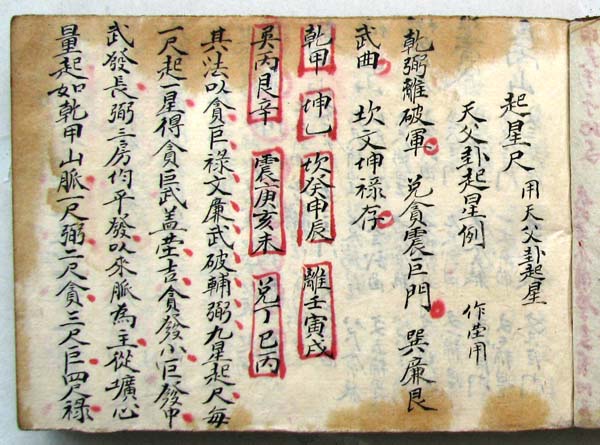 起星尺 用天父卦起星
天父卦起星例 作茔用
乾弼離破軍 兌貪震巨門 巽廉艮
武曲 坎文坤祿存
乾甲 坤乙 坎癸申辰 離壬寅戌
丙艮辛 震庚亥未 兌丁巳丙
其法以貪巨祿文廉武破輔弼九星起尺每
一尺起一星得貪巨武盖茔吉貪發小巨發中
武發長弼三房均平發以來脈為主從壙心
量起如乾甲山脈一尺弼二尺貪三尺巨四尺祿